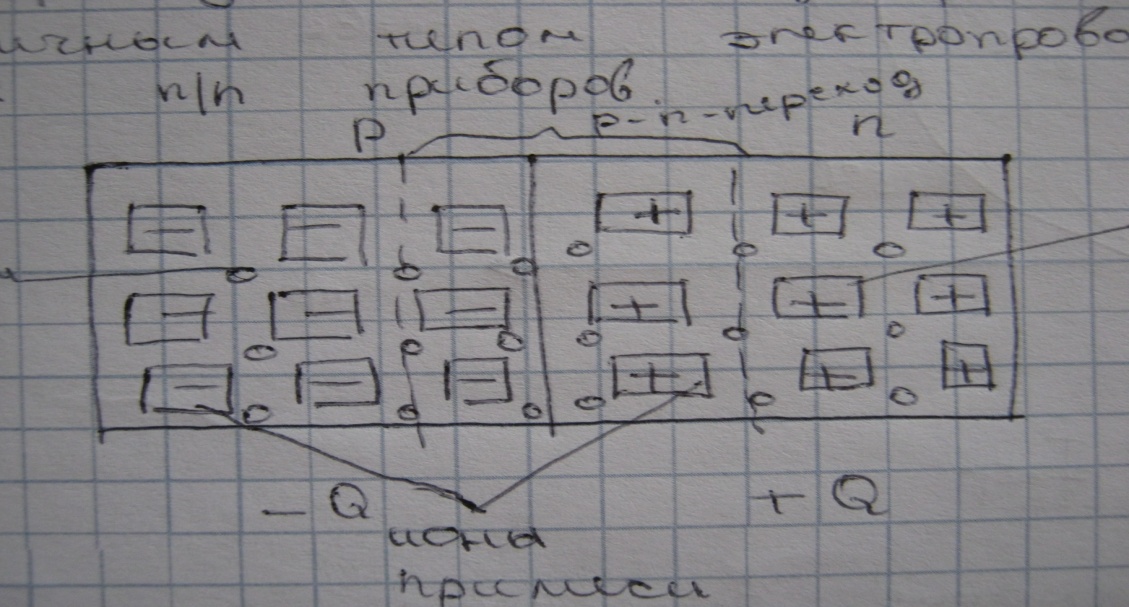 ичным типом электропрово
п/п приборов.
p p-n-переход n
- Q + Q
ионы
примеси